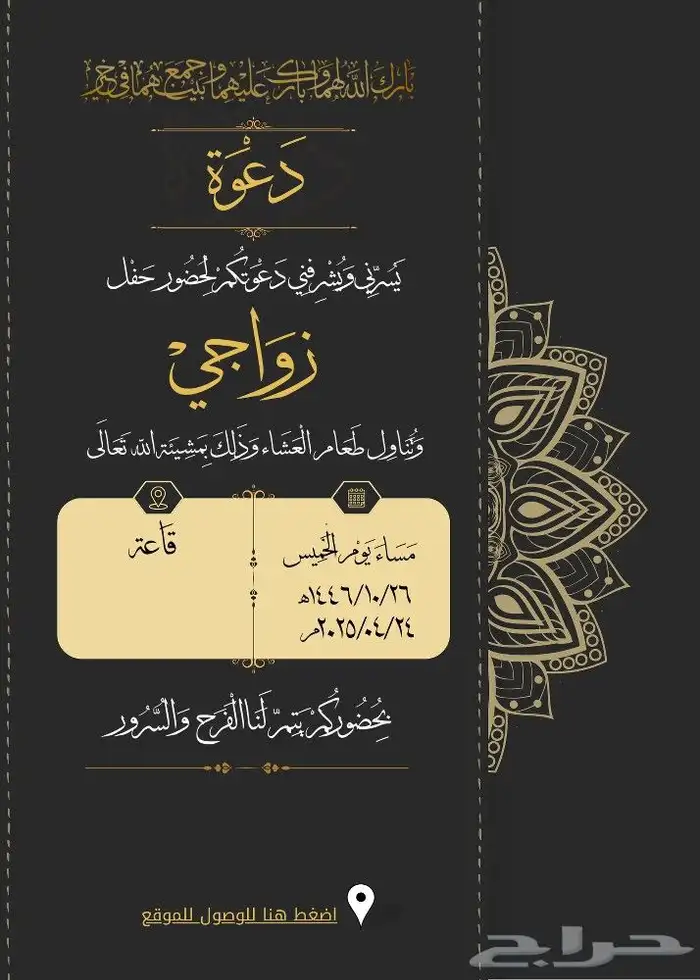 بارك الله لهما وبارك عليهما وجمع بينهما في خير
دَعْوَة
يَسُرّنِي وَيُشْرِفنِي دَعْوَتكُمْ لِحُضُور حَفْل
زَوَاجِيْ
وَتُنَاوِل طَعَام الْعَشَاء وَذَلِكَ بِمَشِيئَة اللَّه تَعَالَى
مَسَاء يَوْم الْخَمِيس
١٤٤٦/١٠/٢٦هـ
٢٠٢٥/٠٤/٢٤م
قَاعَة
بِحُضُوركُمْ يَتِمّ لَنَا الْفَرَح وَالسُّرُور
اضغط هنا للوصول للموقع
حراج